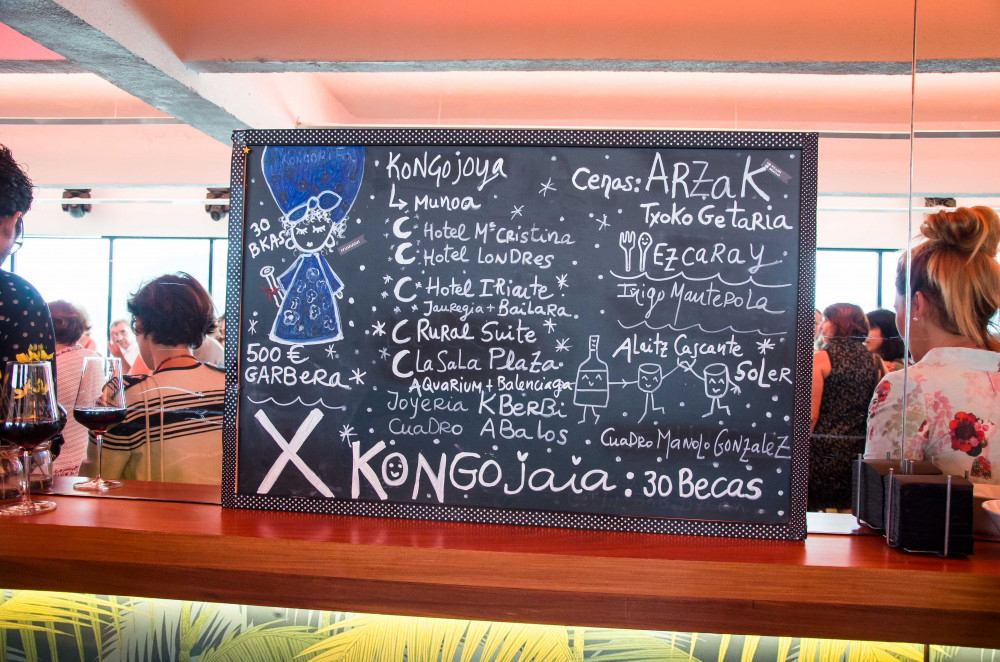 KONGORITO
30
BKAS
500 €
GARBERA
KONGOJOYA
MUNOA
C HOTEL Mª CRISTINA
C HOTEL LONDRES
C HOTEL IRIARTE
JAUREGIA + BAILARA
C RURAL SUITE
C LA SALA PLAZA
AQUARIUM + BALENCIAGA
JOYERIA KBERBI
CUADRO ABALOS
CENAS: ARZAK
TXOKO GETARIA
EZCARAY
IÑIGO MANTEROLA
ALAITZ CASCANTE
SOLER
CUADRO MANOLO GONZALEZ
X KONGOJAIA: 30 BECAS